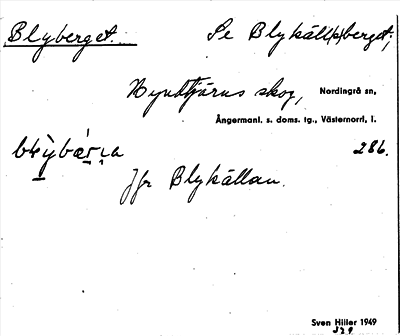 Blyberget. Se Blykäll(s)berget,
skog, Nordingrå sn,
Ångermanl. s. doms. tg., Västernorrl, l.
286.
Jfr Blykällan.
Sven Hiller 1949